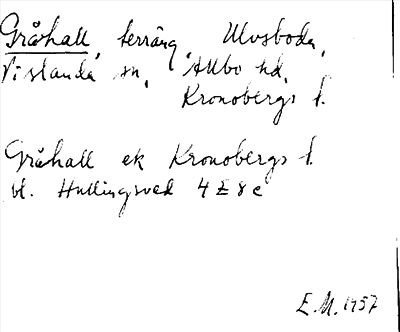 Gråhall, terräng, Ulvsboda,
Vislanda sn, Allbo hd,
Kronobergs l.
Gråhall ek Kronobergs l.
bl. Hullingsved 4 E 8 c
E.M. 1957